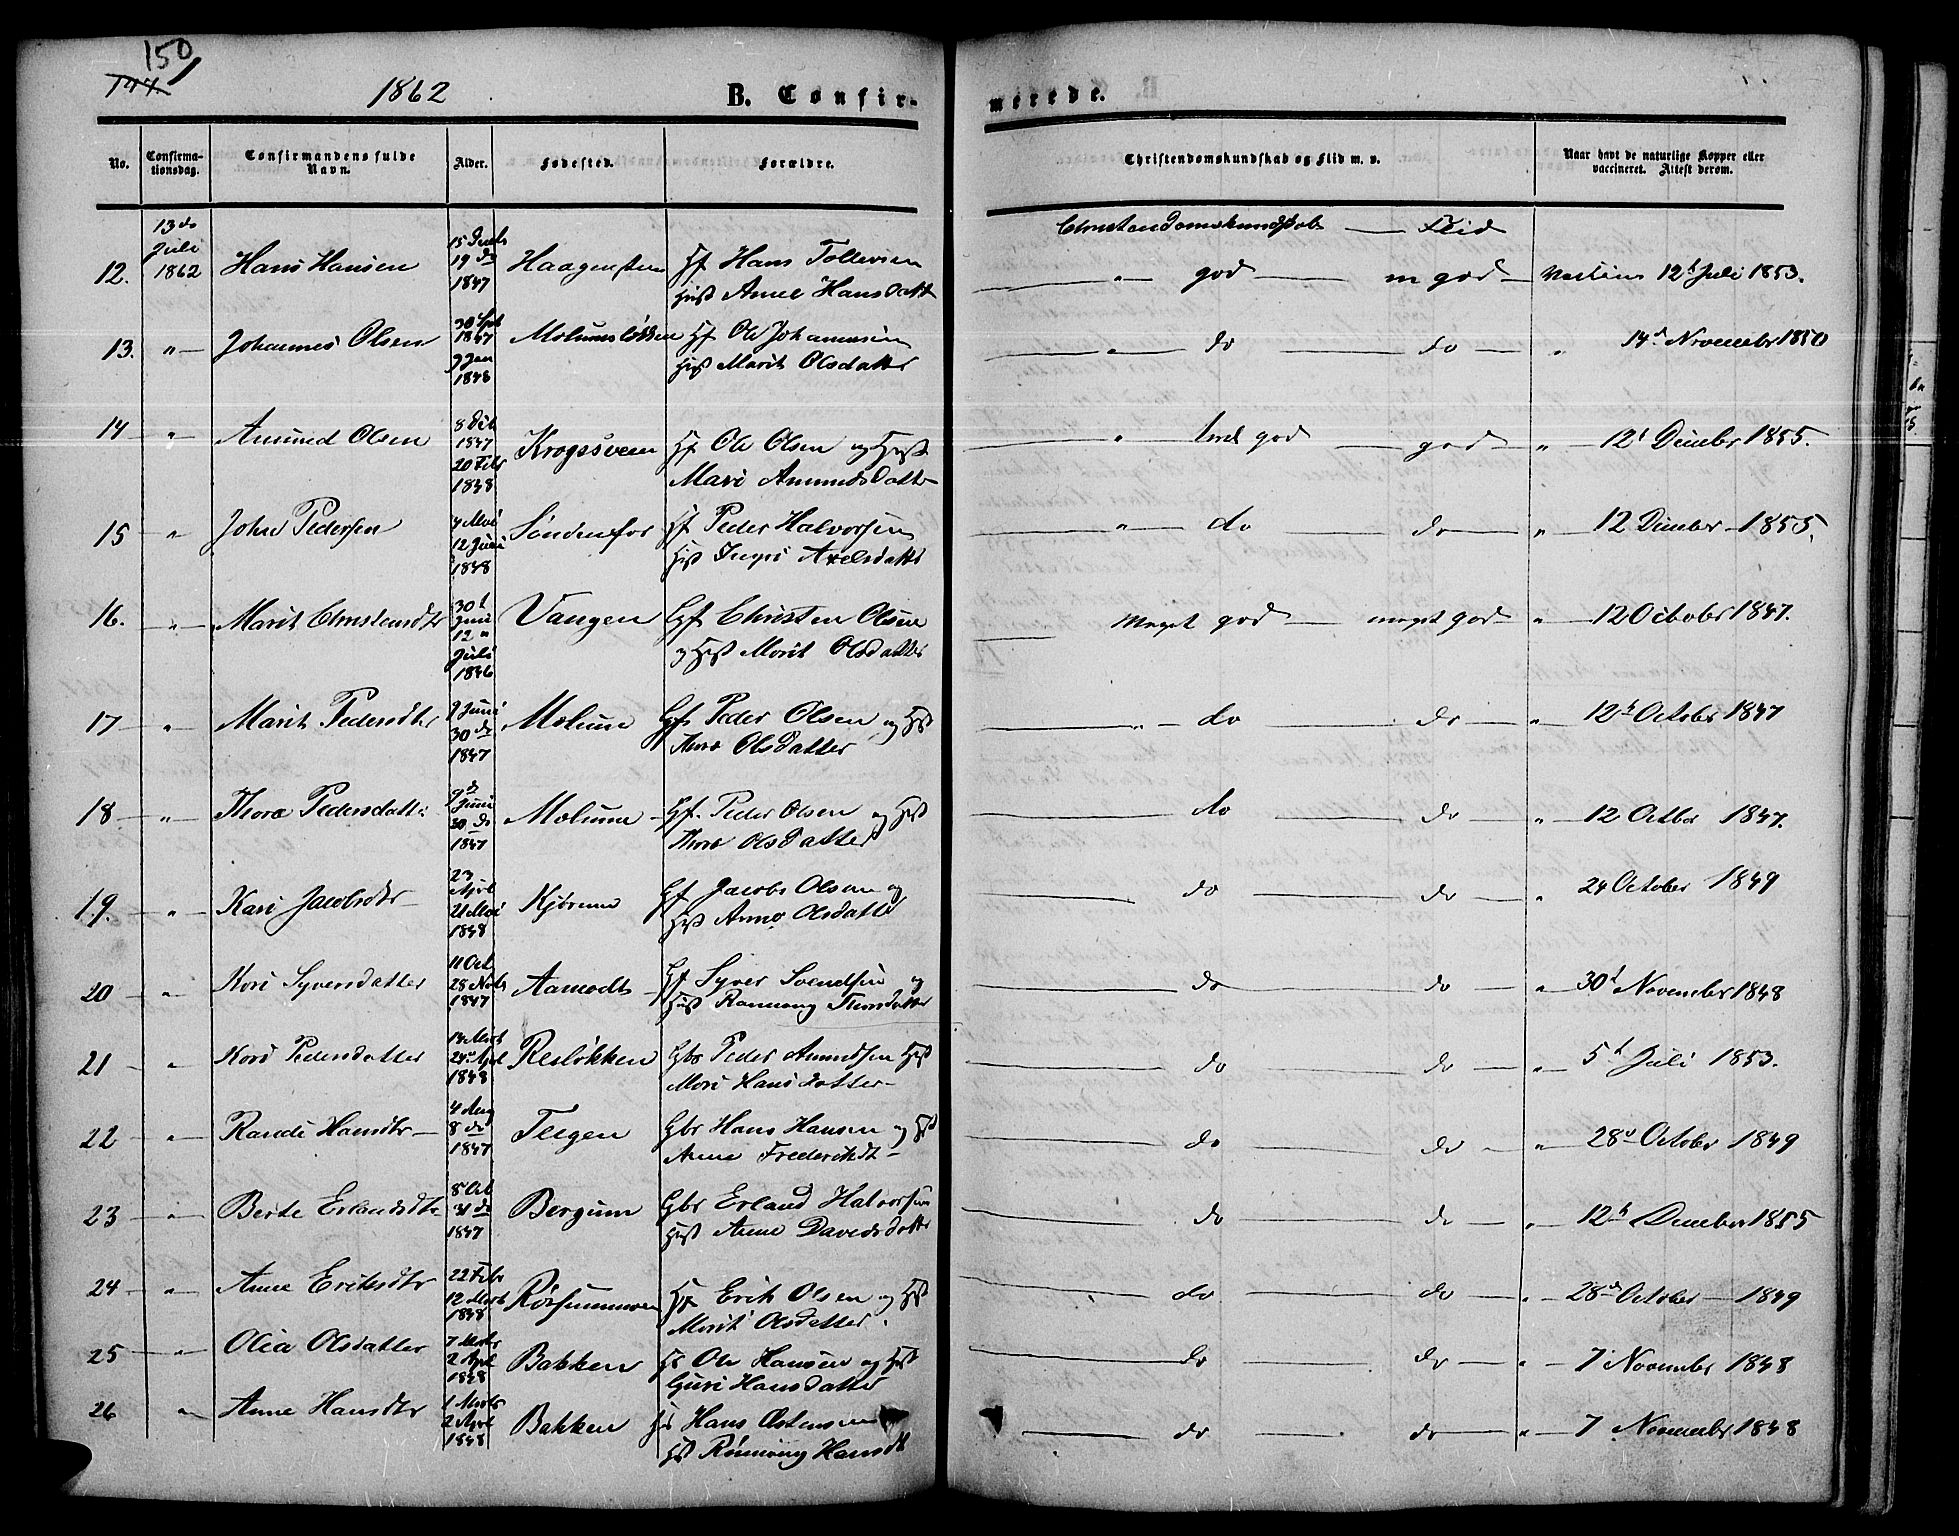 150
147.
1862
B. Confir-
merede.
No.
Confirma-
tionsdag.
Confirmandens fulde
Navn.
Alder.
Fødested.
Forældre.
Christendomskundskab og Flid m. v.
Naar havt de naturlige Kopper eller
vaccineret. Attest derom.
Christendomskundskab — Flid
12. 13de Juli 1862 Hans Hansen 15 19 do 1847 Haagenstuen Gf Hans Tollevsen
Hust Anne Hansdatt
" god — m god — 12t Juli 1853.
13. " Johannes Olsen 30 Spt 1847 9 Jan 1848 Gf Ole Johannesen
Hust Marit Olsdatter
" do — do — " 14d November 1850
14 " Amund Olsen 8 1847 20 Febr 1848 Krogssveen Hf Ole Olsen og Hust
Mari Amundsdatter
" god — god — " 12t Decmber 1855.
15 " Johs Pedersen 4 Mai 12 Juni 1848 Søndenfor Hf Peder Halvorsen
Hust Ingri Axelsdatte
" do — do — " 12 Decmber 1855.
16. " Marit Christensdtr 30t Juni 12 " Juli 1846 Vangen Gf Christen Olsen
og Hust Marit Olsdatter
Meget god — meget god — " 12 October 1847.
17 " Marit Pedersdtr 9 Juni 30 do 1847 Melum Gf Peder Olsen og Hust
Thora Olsdatter
" do — do — " 12t October 1847
18 " Thora Pedersdatter 9d Juni 30 do 1847 Melum Gf. Peder Olsen og Hust
Thora Olsdatter
do — do — " 12 Octbr 1847.
19. " Kari Jacobsdtr 23 April 21 Mai 1848 Gf Jacob Olsen og
Hust Anne Olsdatter
do — do — " 24 October 1849
20 " Kari Syversdatter 11 Oct 28 Novb 1847 Aamodt Gf Syver Svendsen og
Hust Rannoug
do — do — " 30t November 1848
21 " Kari Pedersdatter 14 Mart 24 Apl 1848 Resløkken Gbr Peder Amundsen Hust
Mari Hansdatter
do — do — " 5t Juli 1853.
22 " Randi Hansdtr 4 Aug 8 do 1847 Teigen Gbr Hans Hansen og Hust
Anne Frederiksdt
do — do — " 28d October 1849
23 " Berte Erlandsdtr 8 Oct 31 do 1847 Bergum Gbr Erland Halvorsen
Hust Anne Davidsdatter
do — do — " 12t December 1855
24 " Anne Eriksdtr 22 Febr 12 Mart 1848 Erik Olsen og Hust
Marit Olsdatter.
do — do — " 28de October 1849
25 " Olea Olsdatter 7 Mart 2 April 1848 Bakken Ole Hansen og Hust
Guri Hansdatter
do — do — " 7 November 1848
26 " Anne Hansdtr 1 Marts 2 April 1848 Bakken Hans Østensen
Hust Rønnoug Hansdt
do — do — " 7 November 1848